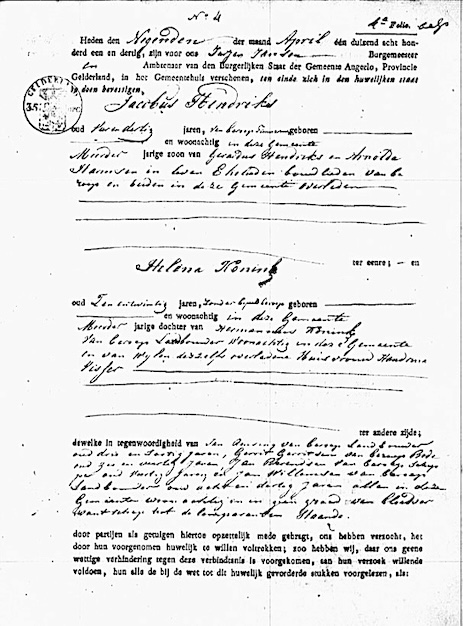 No 4
1e Folio.
Heden den Negenden der maand April één duizend acht hon-
derd een en dertig, zijn voor ons Burgemeester
en Ambtenaar van den Burgerlijken Staat der Gemeente Angerlo, Provincie
Gelderland, in het Gemeentehuis verschenen, ten einde zich in den huwelijken staat
te doen bevestigen,
GELDERLAND
Jacobus Hendriks
oud dertig jaren, van beroep geboren
en woonachtig in deze Gemeente
Minder jarige zoon van Gerardus Hendriks en Arnolda
Harmsen in leven Ehelieden van be
roep en beiden in deze Gemeente overleden
Helena Konink
ter eenre; — en
oud jaren, zonder beroep geboren
en woonachtig in deze Gemeente
Minder jarige dochter van Hermannus Konink
van beroep Landbouwer woonachtig in deze Gemeente
en van wijlen deszelfs overledene Huisvrouw Handrina
Visser
ter andere zijde;
dewelke in tegenwoordigheid van van beroep Landbouwer
oud drie en jaren, Gerrit Gerritsen van beroep Bode
oud en jaren, Jan Berendsen van beroep
jaren en Jan Willemsen van beroep
Landbouwer oud acht en dertig jaren allen in deze
Gemeente woonachtig en in geen graad van bloedver
wantschap tot de comparanten staande.
door partijen als getuigen hiertoe opzettelijk mede gebragt, ons hebben verzocht, het
door hun voorgenomen huwelijk te willen voltrekken; zoo hebben wij, daar ons geene
wettige verhindering tegen deze verbindtenis is voorgekomen, aan hun verzoek willende
voldoen, hun alle de bij de wet tot dit huwelijk gevorderde stukken voorgelezen, als: